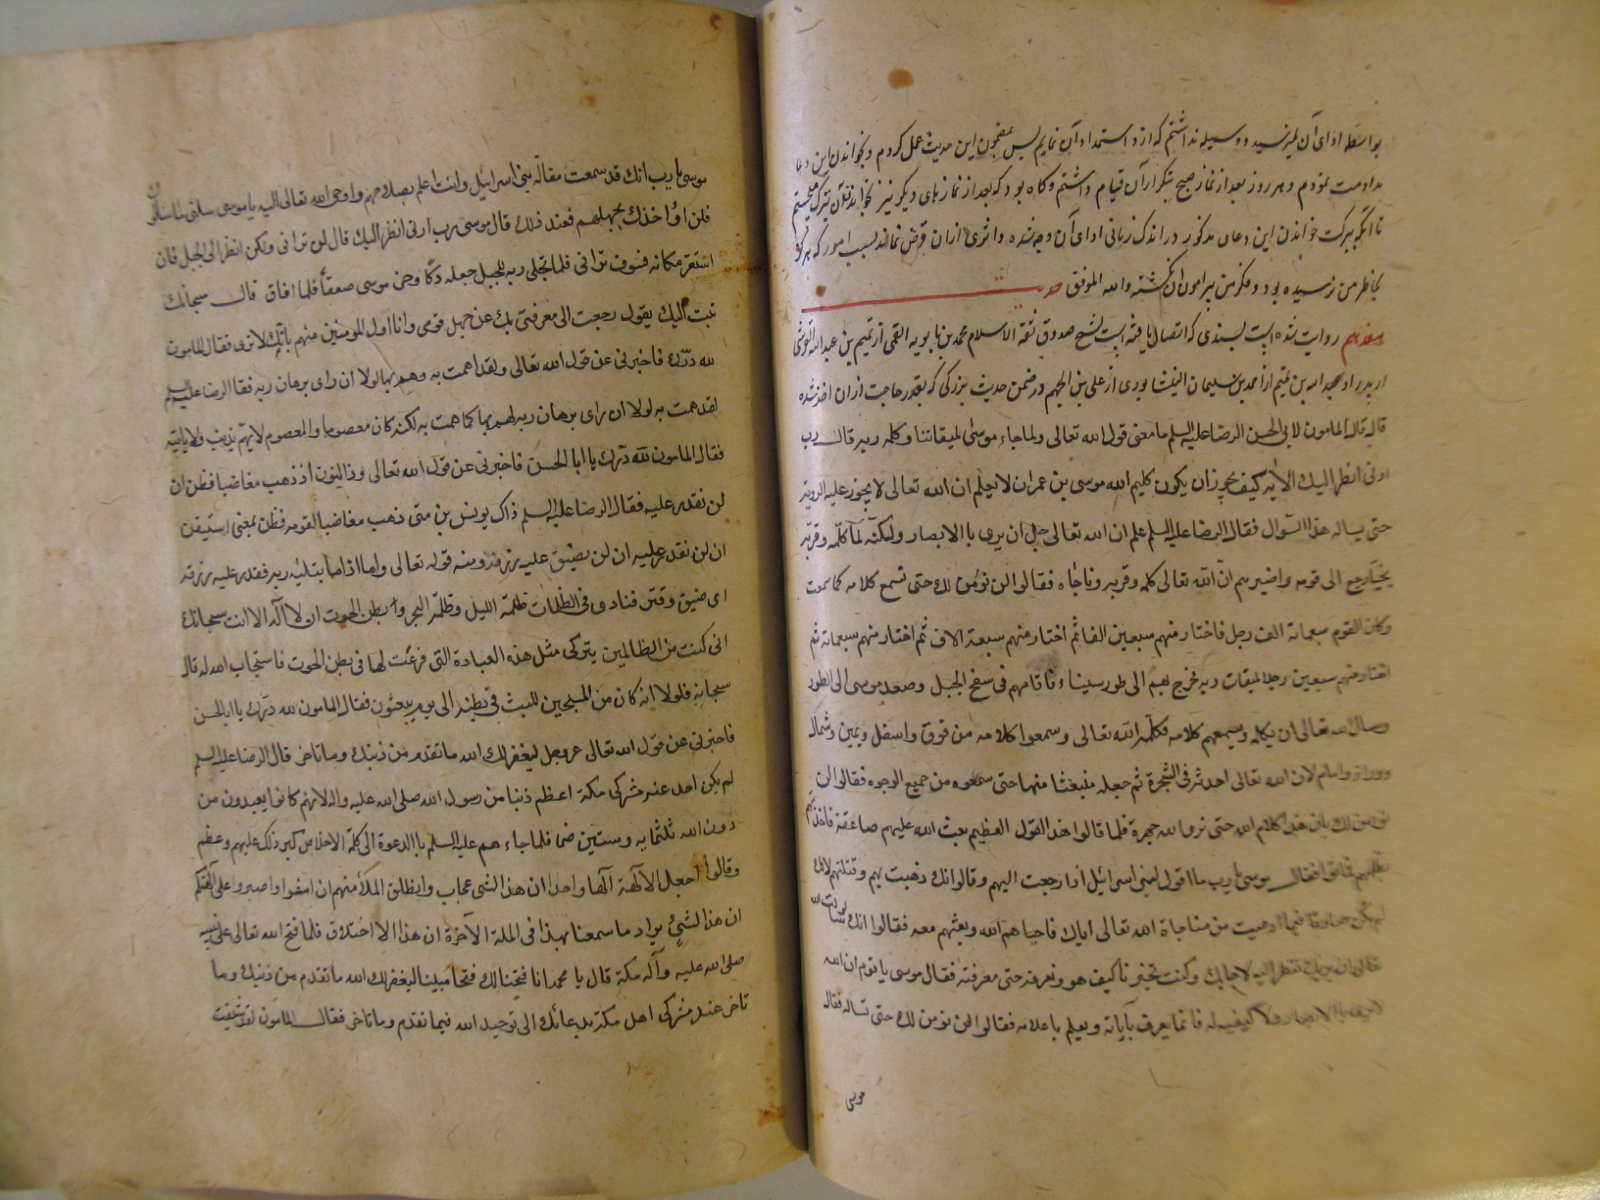 بواسطه ادای آن نمیرسید و وسیله نداشتم که از و استمداد آن نمایم پس بمضمون این حدیث عمل کردم و بخواندن این دعا
مداومت نمودم و هر روز بعد از نماز صبح بتکرار آن قیام داشتم و کاه بود که بعد از نمازهای دیکر نیز بخواندن آن
تا آنکه ببرکت خواندن این دعای مذکور در اندک زمانی ادای آن وجه شده و اثری ازان قرض نماند بسبب امور که هرکز
بخاطر من نرسیده بود و فکر من پیرامون آن نکشته والله الموفق حدیث
هفدهم روایت شده است بسندی که اتصال یافته است بشیخ صدوق ثقة الاسلام محمد بن بابویه القمی از تمیم بن عبدالله القرشی
از پدر او عبدالله بن تمیم از احمد بن سلیمان النیشابوری از علی بن الجهم در ضمن حدیث بزرکی که بقدر حاجت ازان اخذ شده
قال قال المامون لابی الحسن الرضا علیه السلم ما معنی قول الله تعالی ولما جاء موسی لمیقاتنا وکلمه ربه قال رب
ارنی انظر الیک الایه کیف یجوز ان یکون کلیم الله موسی بن عمران لا یعلم ان الله تعالی لا یجوز علیه الرویة
حتی یساله هذا السوال فقال الرضا علیه السلم علم ان الله تعالی جل ان یری بالابصار ولکنه لما کلمه وقربه
نجیا رجع الی قومه واخبرهم ان الله تعالی کلمه وقربه وناجاه فقالوا لن نؤمن لک حتی نسمع کلامه کما سمعت
وکان القوم سبعمائة الف رجل فاختار منهم سبعین الفا ثم اختار منهم سبعة الاف ثم اختار منهم سبعمائة ثم
اختار منهم سبعین رجلا لمیقات ربه فخرج بهم الی طور سیناء فاقامهم فی سفح الجبل وصعد موسی الی الطور
وسال الله تعالی ان یکلمه ویسمعهم کلامه فکلمه الله تعالی وسمعوا کلامه من فوق واسفل ویمین وشمال
ووراء وامام لان الله تعالی احدثه فی الشجرة ثم جعله منبعثا منها حتی سمعوه من جمیع الوجوه فقالوا لن
نؤمن لک بان هذا کلام الله حتی نری الله جهرة فلما قالوا هذا القول العظیم بعث الله علیهم صاعقة فاخذتهم
بظلمهم فماتوا فقال موسی یا رب ما اقول لبنی اسرائیل اذا رجعت الیهم وقالوا انک ذهبت بهم وقتلتهم لانک
لم تکن صادقا فیما ادعیت من مناجاة الله تعالی ایاک فاحیاهم الله وبعثهم معه فقالوا انک لو سالت الله
تعالی ان یریک تنظر الیه لاجابک وکنت تخبرنا کیف هو ونعرفه حتی معرفته فقال موسی یا قوم ان الله
لا یری بالابصار ولا کیفیة له فانما یعرف بآیاته ویعلم باعلامه فقالوا لن نؤمن لک حتی تساله فقال
موسی
موسی یا رب انک قد سمعت مقالة بنی اسرائیل وانت اعلم بصلاحهم واوحی الله تعالی الیه یا موسی سلنی ما سالوک
فلن اؤاخذک بجهلهم فعند ذلک قال موسی رب ارنی انظر الیک قال لن ترانی ولکن انظر الی الجبل فان
استقر مکانه فسوف ترانی فلما تجلی ربه للجبل جعله دکا وخر موسی صعقا فلما افاق قال سبحانک
تبت الیک یقول رجعت الی معرفتی بک عن جهل قومی وانا اول المومنین منهم بانک لا تری فقال المامون
لله درک فاخبرنی عن قول الله تعالی ولقد همت به وهم بها لولا ان رای برهان ربه فقال الرضا علیه السلم
لقد همت به لولا ان رای برهان ربه لهم بها کما همت به لکنه کان معصوما والمعصوم لا یهم بذنب ولا یاتیه
فقال المامون لله درک یا ابا الحسن فاخبرنی عن قول الله تعالی وذا النون اذ ذهب مغاضبا فظن ان
لن نقدر علیه فقال الرضا علیه السلم ذاک یونس بن متی ذهب مغاضبا لقومه فظن بمعنی استیقن
ان لن نقدر علیه ان لن نضیق علیه رزقه ومنه قوله تعالی واما اذا ما ابتلیه ربه فقدر علیه رزقه
ای ضیق وقتر فنادی فی الظلمات ظلمة اللیل وظلمة البحر وبطن الحوت ان لا اله الا انت سبحانک
انی کنت من الظالمین بترکی مثل هذه العبادة التی فرغت لها فی بطن الحوت فاستجاب الله له قال
سبحانه فلولا انه کان من المسبحین للبث فی بطنه الی یوم یبعثون فقال المامون لله درک یا ابا الحسن
فاخبرنی عن قول الله تعالی عز وجل لیغفر لک الله ما تقدم من ذنبک وما تاخر قال الرضا علیه السلم
لم یکن احد عند مشرکی مکة اعظم ذنبا من رسول الله صلی الله علیه واله لانهم کانوا یعبدون من
دون الله ثلثمایه وستین صنما فلما جاءهم علیه السلم بالدعوة الی کلمة الاخلاص کبر ذلک علیهم وعظم
وقالوا اجعل الآلهة الها واحدا ان هذا لشی عجاب وانطلق الملأ منهم ان امشوا واصبروا علی آلهتکم
ان هذا لشیء یراد ما سمعنا بهذا فی الملة الآخرة ان هذا الا اختلاق فلما فتح الله تعالی علی نبیه
صلی الله علیه وآله مکة قال یا محمد انا فتحنا لک فتحا مبینا لیغفر لک الله ما تقدم من ذنبک وما
تاخر عند مشرکی اهل مکة بدعائک الی توحید الله فیما تقدم وما تاخر فقال المامون لقد شفیت